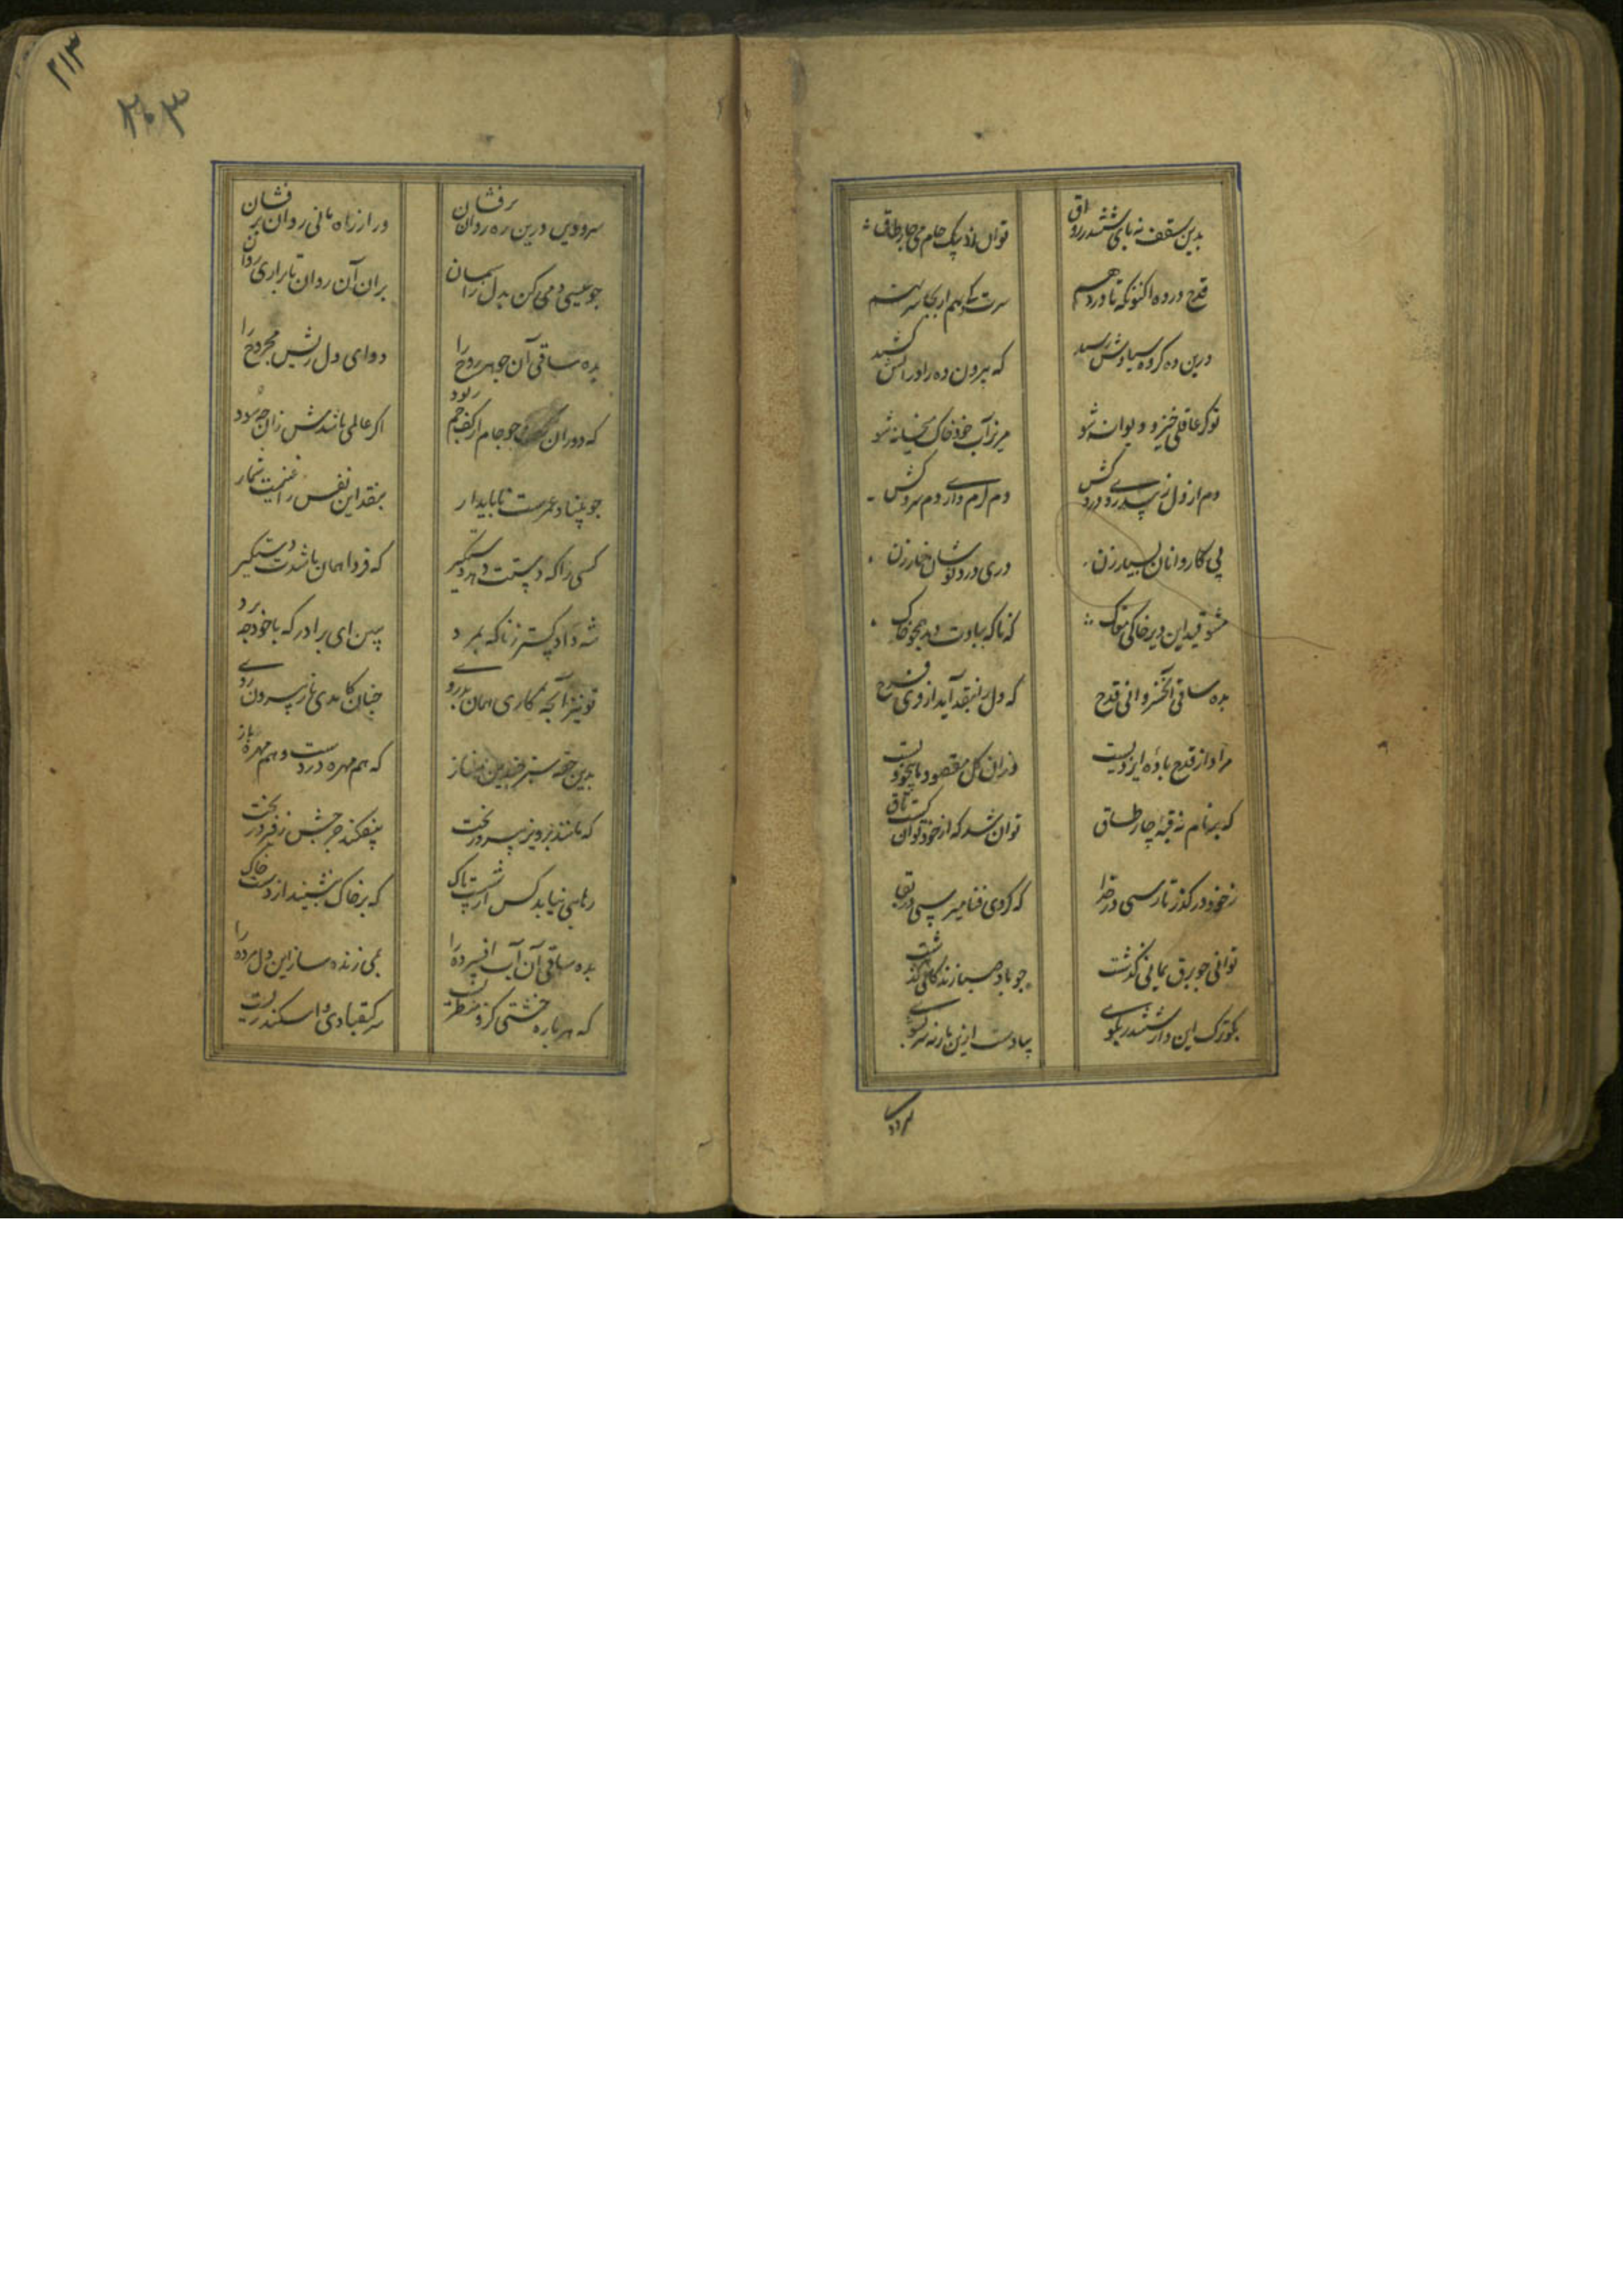 بدین سقف نه پای ششدر رواق
توان زد بیک جام می چار طاق
قدح در ده اکنون که تا در دهیم
سرت کر بهم از بکجا سر نهیم
درین ده کروه سیاوش رسید
که بیرون ده را در آتش کشید
تو کر عاقلی خیز و دیوانه شو
مریز آب خود خاک میخانه شو
دم از دل زن پیر دردی کش
دم کرم دار و دم سرد کش
پی کاروانان بسیار زن
دری درد نوشان خمار زن
مشو قید این دیر خاکی مغاک
که ناکه ببادت دهد همچو خاک
بده ساقی آن خسروانی قدح
که دل را بنقد آید از وی فرح
مراد از قدح باده ایزدیست
وزان کل مقصود ما بیخودیست
که بر بام نه قبه چار طاق
توان شد که از خود توان کشت تاق
ز خود در کذر تا رسی در خدا
که کردی فنا میرسی در بقا
توانی چو برق یمانی کذشت
چو باد صبا زندکانی کذشت
بکو ترک این دار ششدر بکوی
بیا دست ازین مار نه سر بشوی
سرودی درین ره روان برفشان
ور از راه مانی روان برفشان
چو عیسی دمی کن بدل را بسان
بران آن روان تا براری روان
بده ساقی آن جوهر روح را
دوای دل ریش مجروح را
که دوران چو جام از کف جم ربود
اکر عالمی باشدش زان چه سود
چو بنیاد عمرست ناپایدار
بنقد این نفس را غنیمت شمار
کسی را که دستت دهد دستکیر
که فردا همان باشدت دستکیر
شه دادکستر زناکه بمرد
ببین ای برادر که با خود چه برد
تو نیز آنچه کاری همان بدروی
چنان کامدی باز بیرون روی
بدین حقه سبز چندین مناز
که هم مهره دزدست و هم مهره باز
که مانند پرویز پیروز بخت
بیفکند چرخش ز فیروز تخت
رهایی نیابد کس از شست پاک
که بر خاک ننشیند از دست خاک
بده ساقی آن آب افسرده را
بمی زنده ساز این دل مرده را
که هر پاره خشتی که بر منظریست
سر کیقبادی و اسکندریست
۲۱۳